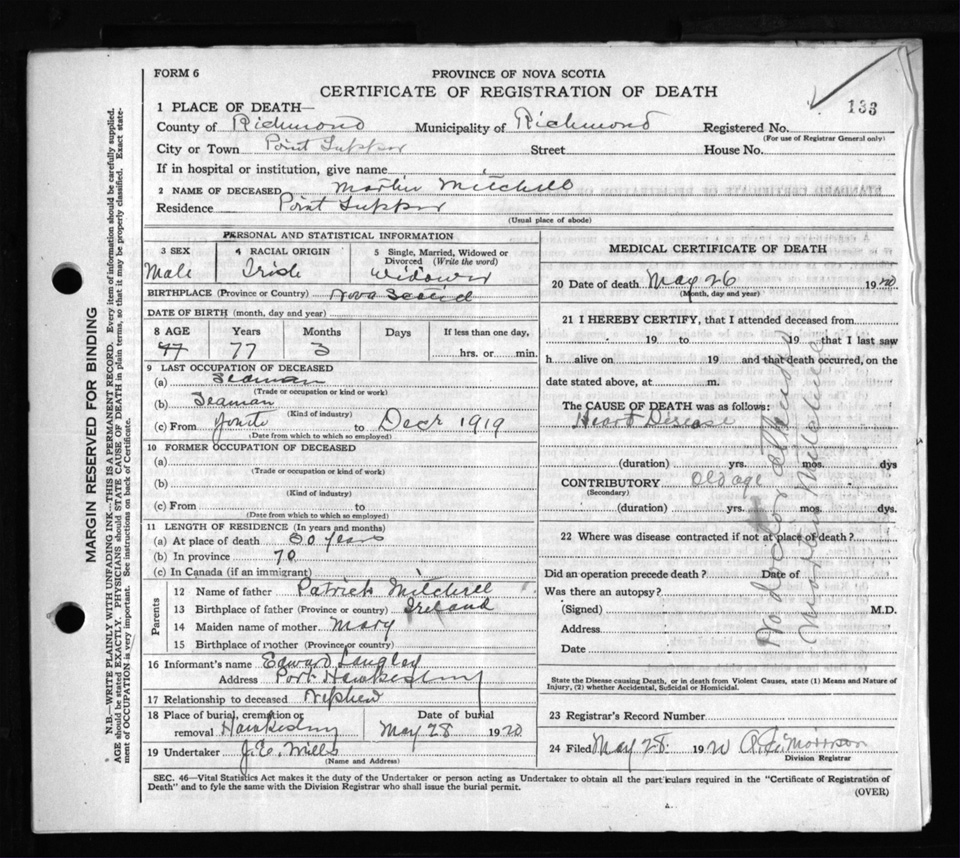 FORM 6
PROVINCE OF NOVA SCOTIA
CERTIFICATE OF REGISTRATION OF DEATH
133
1 PLACE OF DEATH—
County of Richmond Municipality of Richmond Registered No.
(For use of Registrar General only)
City or Town Point Tupper Street House No.
If in hospital or institution, give name
2 NAME OF DECEASED Martin Mitchell
Residence Point Tupper
(Usual place of abode)
PERSONAL AND STATISTICAL INFORMATION
3 SEX
Male
4 RACIAL ORIGIN
Irish
5 Single, Married, Widowed or Divorced (Write the word)
Widower
BIRTHPLACE (Province or Country) Nova Scotia
DATE OF BIRTH (month, day and year)
8 AGE Years Months Days If less than one day,
77 77 3 hrs. or min.
9 LAST OCCUPATION OF DECEASED
(a) Seaman
(Trade or occupation or kind or work)
(b) Seaman
(Kind of industry)
(c) From to Decr 1919
(Date from which to which so employed)
10 FORMER OCCUPATION OF DECEASED
(a)
(Trade or occupation or kind of work)
(b)
(Kind of industry)
(c) From to
(Date from which to which so employed)
11 LENGTH OF RESIDENCE (In years and months)
(a) At place of death years
(b) In province 70
(c) In Canada (if an immigrant)
Parents
12 Name of father Patrick Mitchell
13 Birthplace of father (Province or country) Ireland
14 Maiden name of mother Mary
15 Birthplace of mother (Province or country)
16 Informant's name Edward Langley
Address Port Hawkesbury
17 Relationship to deceased Nephew
18 Place of burial, cremation or removal Hawkesbury
Date of burial
May 28 1920
19 Undertaker J.E. Mills
(Name and Address)
MEDICAL CERTIFICATE OF DEATH
20 Date of death May 26 1920
(Month, day and year)
21 I HEREBY CERTIFY, that I attended deceased from
19 to 19 that I last saw
h alive on 19 and that death occurred, on the
date stated above, at m.
The CAUSE OF DEATH was as follows:
Heart Disease
(duration) yrs. mos. dys
CONTRIBUTORY Old age
(Secondary)
(duration) yrs. mos. dys
22 Where was disease contracted if not at place of death?
Did an operation precede death? Date of
Was there an autopsy?
(Signed) M.D.
Address
Date
No doctor attending
State the Disease causing Death, or in death from Violent Causes, state (1) Means and Nature of
Injury, (2) whether Accidental, Suicidal or Homicidal.
23 Registrar's Record Number
24 Filed May 28 1920 Morrison
Division Registrar
SEC. 46—Vital Statistics Act makes it the duty of the Undertaker or person acting as Undertaker to obtain all the particulars required in the "Certificate of Registration of
Death" and to fyle the same with the Division Registrar who shall issue the burial permit.
(OVER)
MARGIN RESERVED FOR BINDING
N.B.—WRITE PLAINLY WITH UNFADING INK—THIS IS A PERMANENT RECORD. Every item of information should be carefully supplied.
AGE should be stated EXACTLY. PHYSICIANS should STATE CAUSE OF DEATH in plain terms, so that it may be properly classified. Exact state-
ment of OCCUPATION is very important. See instructions on back of Certificate.